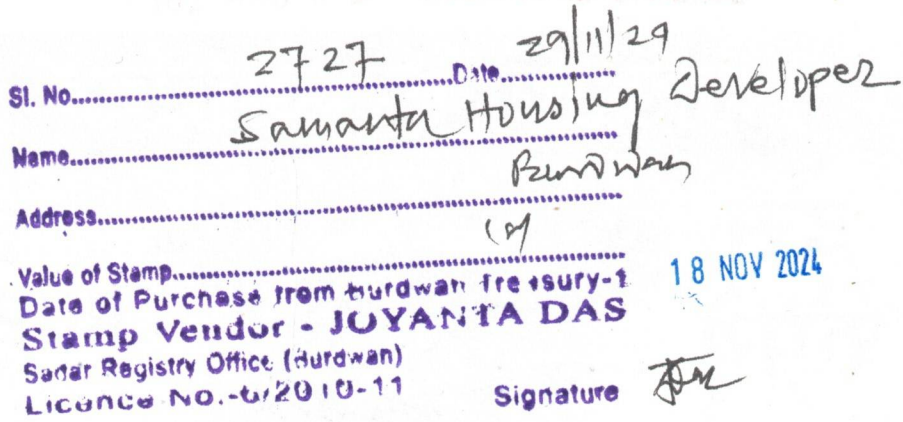 Sl. No. 2727 Date 29/11/24
Name Samanta Housing Developer
Address Burdwan
Value of Stamp
Date of Purchase from Burdwan Treasury-1 18 NOV 2024
Stamp Vendor - JOYANTA DAS
Sadar Registry Office (Burdwan)
Licence No.-6/2010-11 Signature